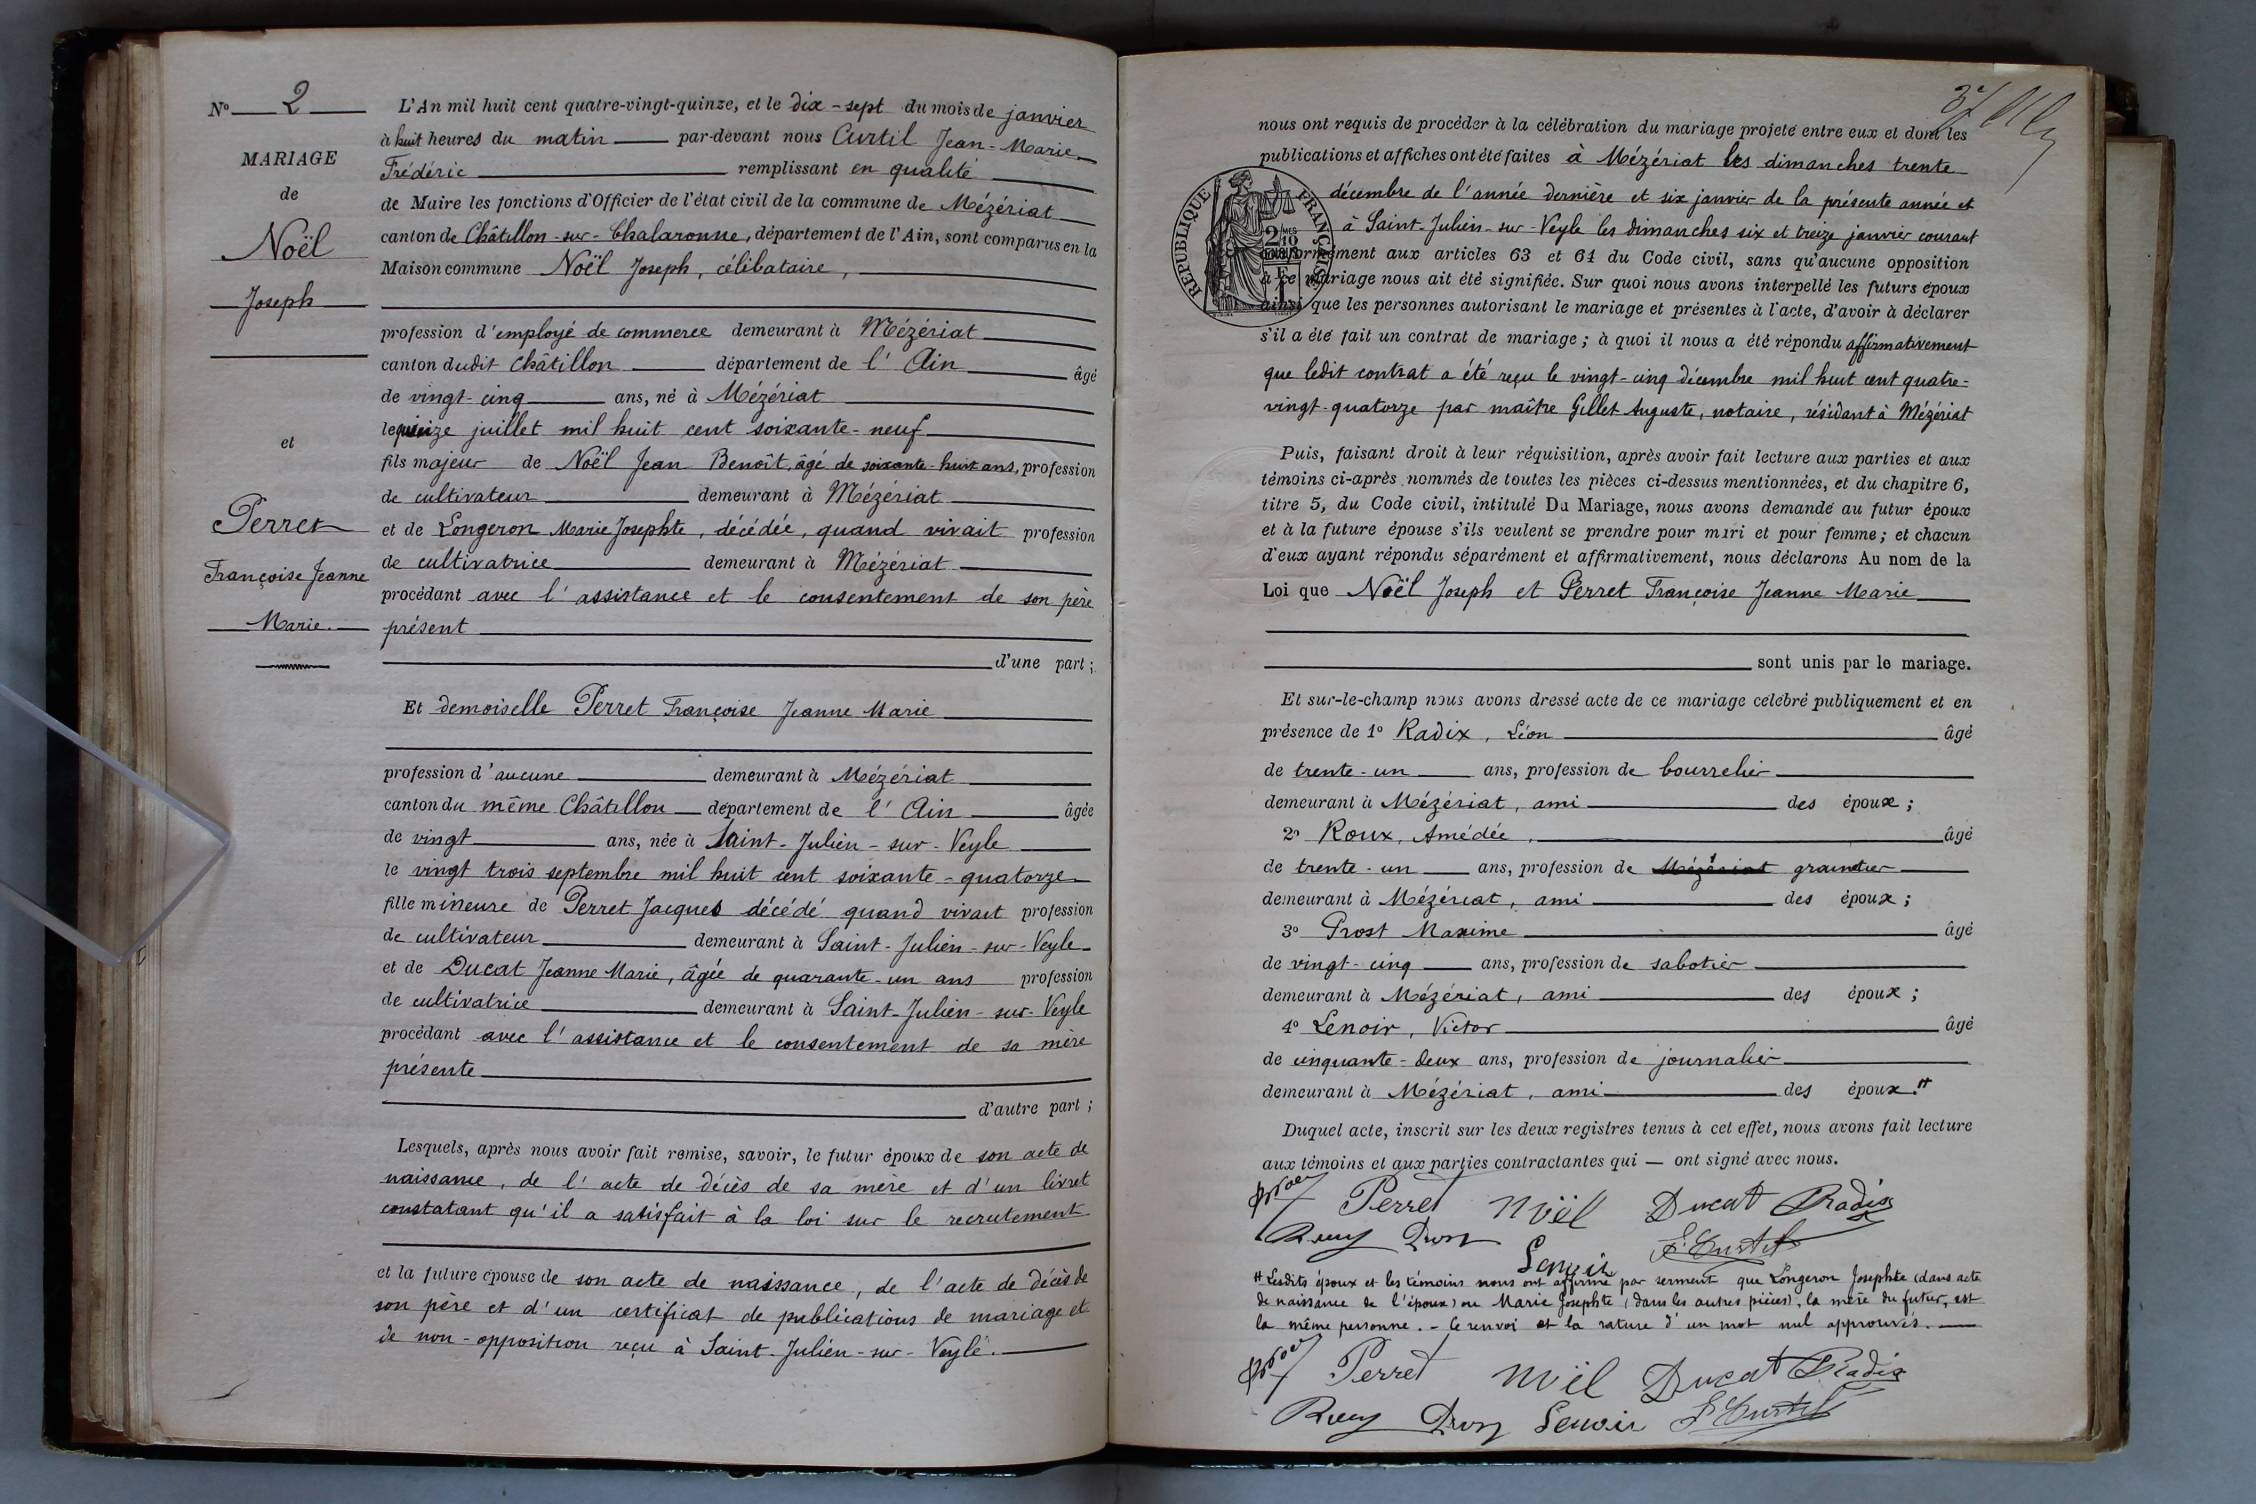 N° 2
MARIAGE
de
Noël
Joseph
et
Perret
Françoise Jeanne
Marie.
L'An mil huit cent quatre-vingt-quinze, et le dix-sept du mois de janvier
à huit heures du matin par-devant nous Curtil Jean-Marie
Frédéric remplissant en qualité
de Maire les fonctions d'Officier de l'état civil de la commune de Mézériat
canton de Châtillon-sur-Chalaronne, département de l'Ain, sont comparus en la
Maison commune Noël Joseph, célibataire,
profession d'employé de commerce demeurant à Mézériat
canton dudit Châtillon département de l'Ain âgé
de vingt-cinq ans, né à Mézériat
le juillet mil huit cent soixante-neuf
fils majeur de Noël Jean Benoît, âgé de soixante-huit ans, profession
de cultivateur demeurant à Mézériat
et de Longeron Marie Josephte, décédée, quand vivait profession
de cultivatrice demeurant à Mézériat
procédant avec l'assistance et le consentement de son père
présent
d'une part;
Et demoiselle Perret Françoise Jeanne Marie
profession d'aucune demeurant à Mézériat
canton du même Châtillon département de l'Ain âgée
de vingt ans, née à Saint-Julien-sur-Veyle
le vingt trois septembre mil huit cent soixante-quatorze
fille mineure de Perret Jacques décédé quand vivait profession
de cultivateur demeurant à Saint-Julien-sur-Veyle
et de Ducat Jeanne Marie, âgée de quarante-un ans profession
de cultivatrice demeurant à Saint-Julien-sur-Veyle
procédant avec l'assistance et le consentement de sa mère
présente
d'autre part;
Lesquels, après nous avoir fait remise, savoir, le futur époux de son acte de
naissance, de l'acte de décès de sa mère et d'un livret
constatant qu'il a satisfait à la loi sur le recrutement
et la future épouse de son acte de naissance, de l'acte de décès de
son père et d'un certificat de publications de mariage et
de non-opposition reçu à Saint-Julien-sur-Veyle.
nous ont requis de procéder à la célébration du mariage projeté entre eux et dont les
publications et affiches ont été faites à Mézériat les dimanches trente
décembre de l'année dernière et six janvier de la présente année et
à Saint-Julien-sur-Veyle les dimanches six et treize janvier courant
conformément aux articles 63 et 64 du Code civil, sans qu'aucune opposition
à ce mariage nous ait été signifiée. Sur quoi nous avons interpellé les futurs époux
ainsi que les personnes autorisant le mariage et présentes à l'acte, d'avoir à déclarer
s'il a été fait un contrat de mariage; à quoi il nous a été répondu affirmativement
que ledit contrat a été reçu le vingt-cinq décembre mil huit cent quatre-
vingt-quatorze par maître Gillet Auguste, notaire, résidant à Mézériat
RÉPUBLIQUE FRANÇAISE
Puis, faisant droit à leur réquisition, après avoir fait lecture aux parties et aux
témoins ci-après nommés de toutes les pièces ci-dessus mentionnées, et du chapitre 6,
titre 5, du Code civil, intitulé Du Mariage, nous avons demandé au futur époux
et à la future épouse s'ils veulent se prendre pour mari et pour femme; et chacun
d'eux ayant répondu séparément et affirmativement, nous déclarons Au nom de la
Loi que Noël Joseph et Perret Françoise Jeanne Marie
sont unis par le mariage.
Et sur-le-champ nous avons dressé acte de ce mariage célébré publiquement et en
présence de 1° Radix, Léon âgé
de trente-un ans, profession de bourrelier
demeurant à Mézériat, ami des époux;
2° Roux, Amédée, âgé
de trente-un ans, profession de Mézériat grainetier
demeurant à Mézériat, ami des époux;
3° Prost Maxime âgé
de vingt-cinq ans, profession de sabotier
demeurant à Mézériat, ami des époux;
4° Lenoir, Victor âgé
de cinquante-deux ans, profession de journalier
demeurant à Mézériat, ami des époux.#
Duquel acte, inscrit sur les deux registres tenus à cet effet, nous avons fait lecture
aux témoins et aux parties contractantes qui — ont signé avec nous.
Perret Noël Ducat Radix
Lenoir
# Lesdits époux et les témoins nous ont affirmé par serment que Longeron Josephte (dans acte
de naissance de l'époux) ou Marie Josephte (dans les autres pièces), la mère du futur, est
la même personne. - Ce renvoi et la rature d'un mot nul approuvés.
Perret Noël Ducat Radix
Lenoir